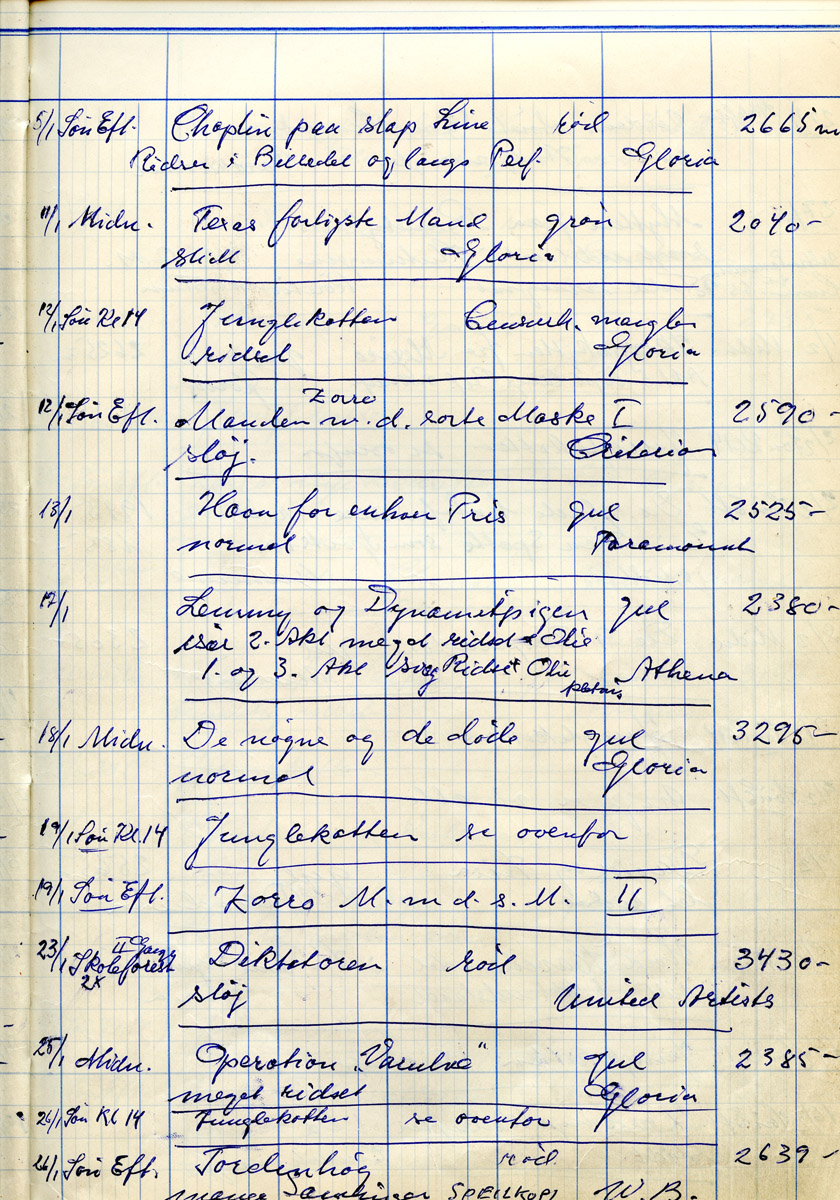 5/1 Søn Eft. Chaplin paa slap Line rød 2665 m
Ridser i Billedet og langs Perf. Gloria
11/1 Midn. Texas farligste Mand grøn 2040-
Gloria
12/1 Søn Kl 14 Junglekatten Censurk. mangler
ridset Gloria
Zorro
12/1 Søn Eft. Manden m. d. sorte Maske I 2590-
støj. Criterion
13/1 Havn for enhver Pris gul 2525-
normal Paramount
17/1 Lemmy og Dynamitpigen gul 2380-
især 2. Akt meget ridset + Olie
1. og 3. Akt svag Ridset + Olie
Athena
18/1 Midn. De nøgne og de døde gul 3295-
normal Gloria
19/1 Søn Kl. 14 Junglekatten se ovenfor
19/1 Søn Eft. Zorro M. m d. s. M. II
23/1 II Gange Diktatoren rød 3430-
Skoleforest
2x støj United Artists
25/1 Midn. Operation "Varulve" gul 2385-
meget ridset Gloria
26/1 Søn Kl 14 Junglekatten se ovenfor
26/1 Søn Eft. Tordenhøg rød 2639-
mange Samlinger SPELLKOPI W.B.